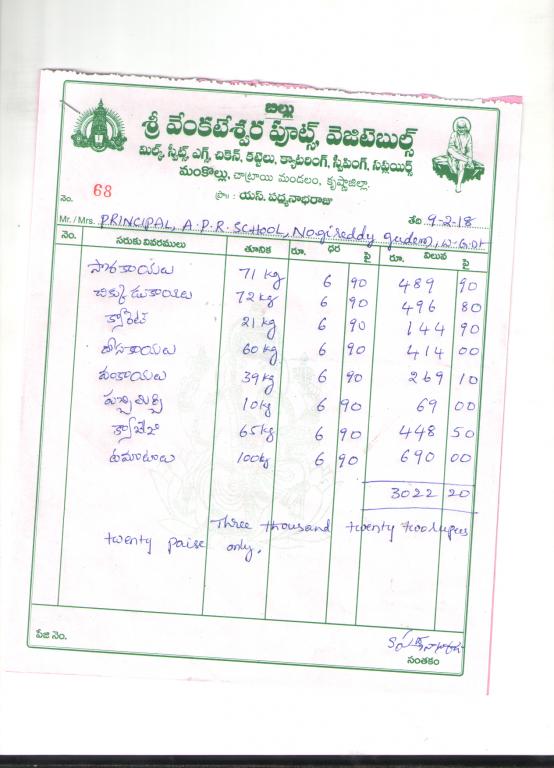 బిల్లు
శ్రీ వేంకటేశ్వర ఫ్రూట్స్, వెజిటెబుల్స్
మిల్క్, స్వీట్స్, ఎగ్స్, చికెన్, కట్టెలు, క్యాటరింగ్, స్వీపింగ్, సప్లయర్స్
మంకొల్లు, చాట్రాయి మండలం, కృష్ణాజిల్లా.
నెం. 68
ప్రొ: యస్. పద్మనాభరాజు
Mr. / Mrs. PRINCIPAL, A.P.R. SCHOOL, Nogireddy gudem, W.G.Dt తేది 9-2-18
నెం. సరుకు వివరములు తూనిక రూ. ధర పై రూ. విలువ పై
సొరకాయలు 71 kg 6 90 489 90
చిక్కుడుకాయలు 72 kg 6 90 496 80
క్యారెట్ 21 kg 6 90 144 90
దోసకాయలు 60 kg 6 90 414 00
వంకాయలు 39 kg 6 90 269 10
పచ్చిమిర్చి 10 kg 6 90 69 00
క్యాబేజి 65 kg 6 90 448 50
టమాటాలు 100 kg 6 90 690 00
3022 20
Three thousand twenty two rupees
twenty paise only.
పేజి నెం.
సంతకం